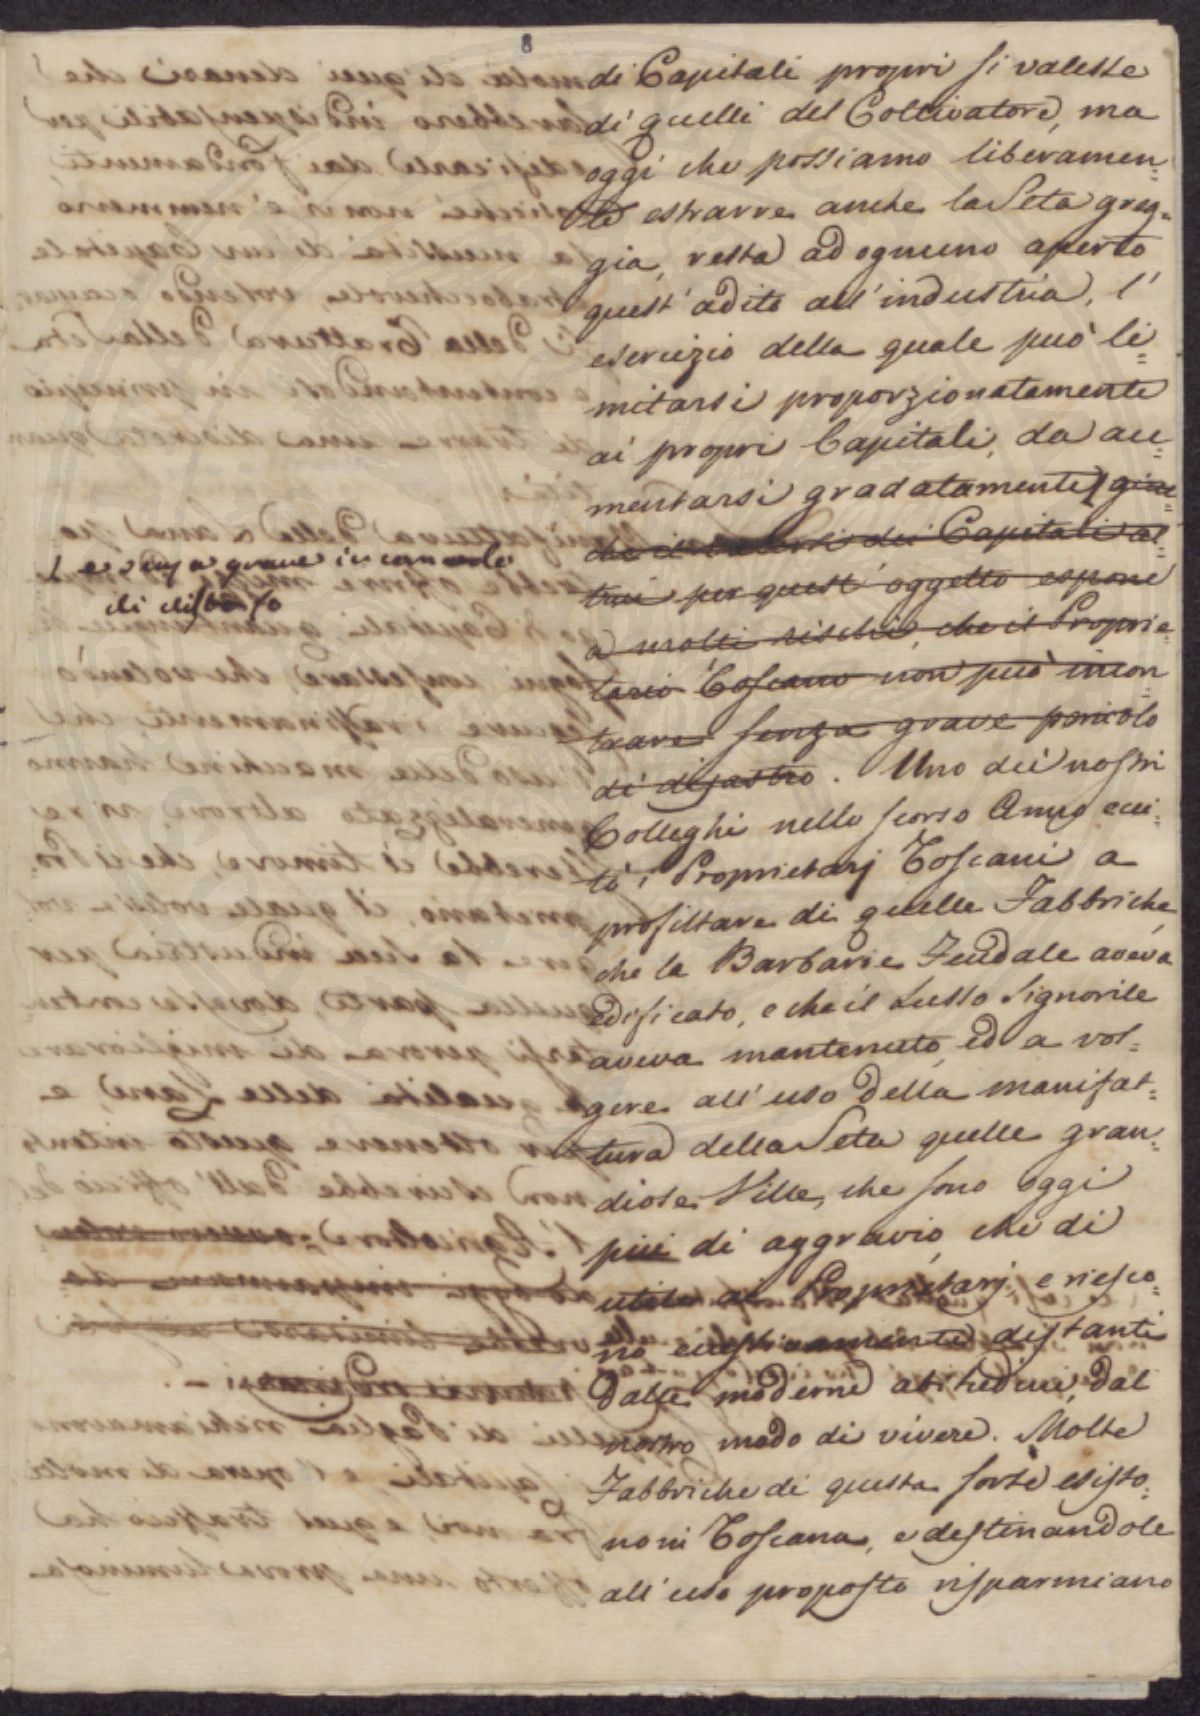 8
di Capitali propri si valesse
di quelli del Coltivatore, ma
oggi che possiamo liberamen=
te estrarre anche la Seta greg=
gia, resta ad ognuno aperto
quest' adito all' industria, l'
esercizio della quale può li=
mitarsi proporzionatamente
ai propri Capitali, da au=
mentarsi gradatamente
che il valersi dei Capitali al=
trui per quest' oggetto espone
a molti rischi, che il Proprie=
tario Toscano non può incon
trare senza grave pericolo
di disastro. Uno dei nostri
Colleghi nello scorso Anno ecci=
tò i Proprietarj Toscani a
profittare di quelle Fabbriche,
che la Barbarie Feudale aveva
edificato, e che il Lusso Signorile
aveva mantenuto, ed a vol=
gere all' uso della manifat=
tura della Seta quelle gran=
diose Ville, che sono oggi
più di aggravio, che di
utile ai Proprietarj, e riesco=
no distanti
dalle moderne abitudini, dal
nostro modo di vivere. Molte
Fabbriche di questa sorte esisto=
no in Toscana, e destinandole
all' uso proposto risparmiano
e senza grave incomodo
di disborso